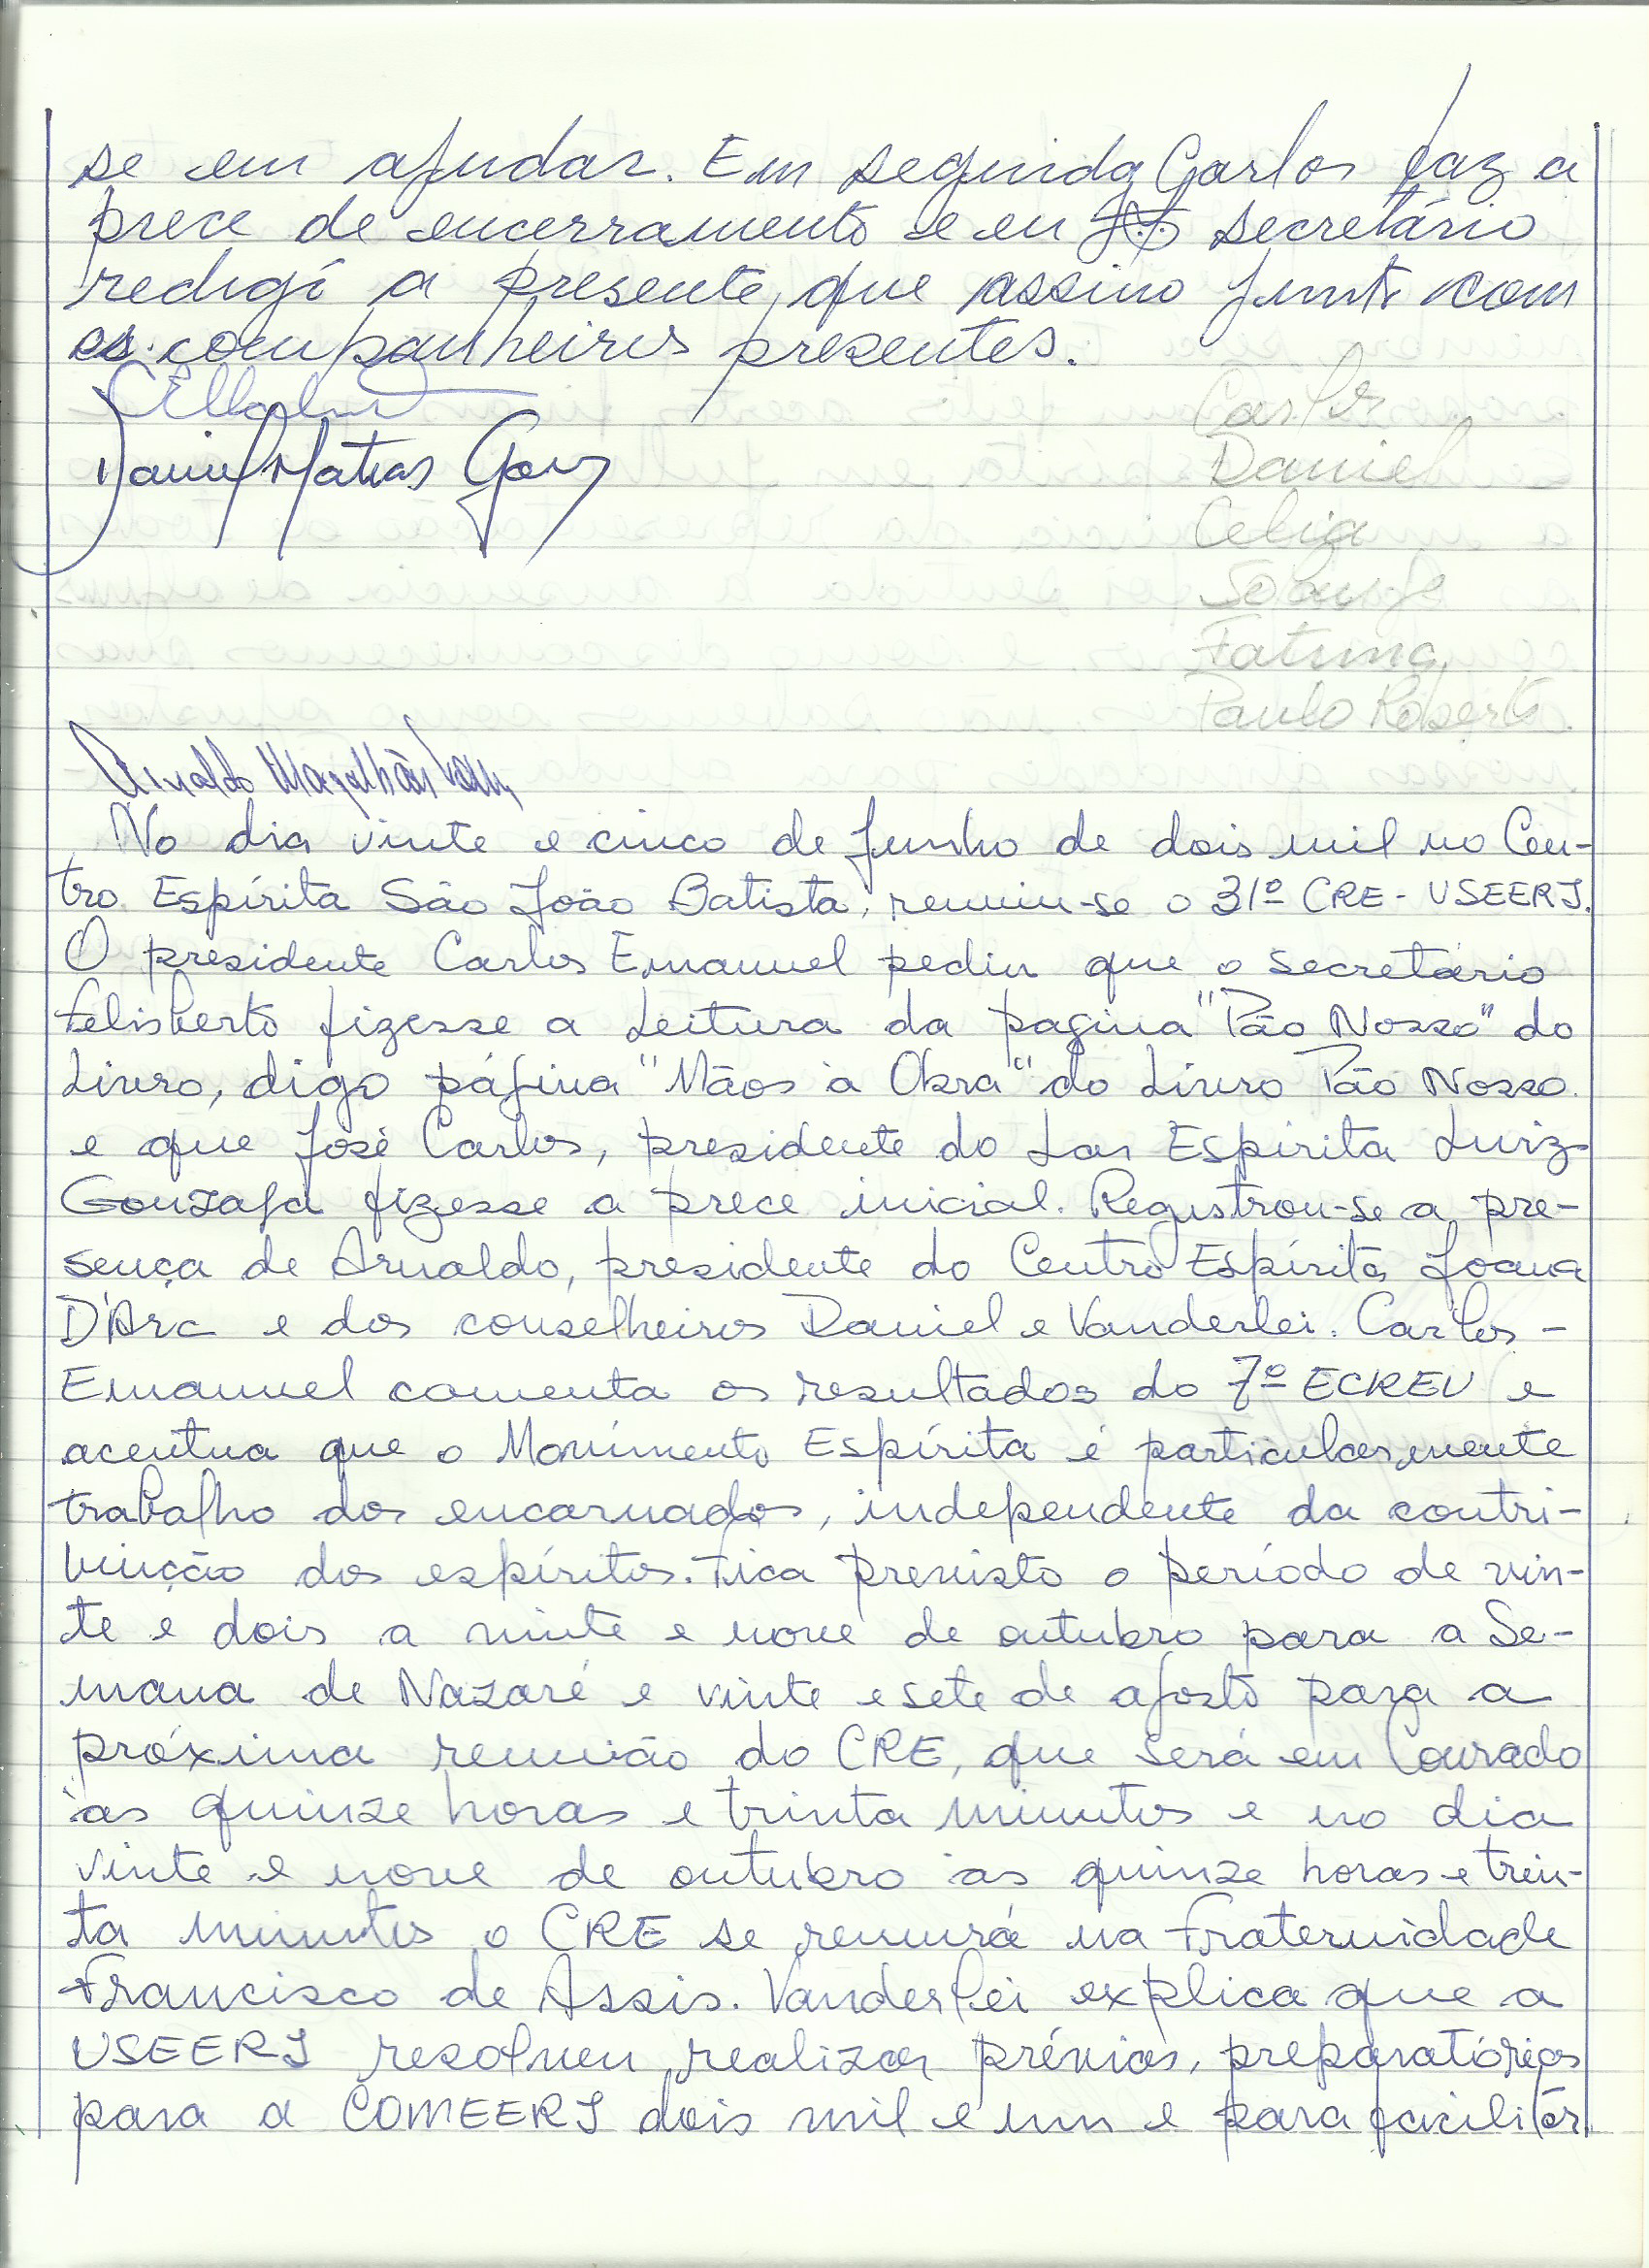 se em ajudar. Em seguida Carlos faz a
prece de encerramento e eu secretário
redigí a presente, que assino junto com
os companheiros presentes.
Carlos
Daniel Matias
Daniel
Celia
Solange
Fatima
Paulo Roberto.
Arnaldo Magalhães
No dia vinte e cinco de Junho de dois mil no Cen-
tro Espírita São João Batista, reuniu-se o 31º CRE - USEERJ.
O presidente Carlos Emanuel pediu que o secretário
Felisberto fizesse a Leitura da pagina "Pão Nosso" do
Livro, digo página "Mãos à Obra" do Livro Pão Nosso.
e que José Carlos, presidente do Lar Espírita Luiz
Gonzaga fizesse a prece inicial. Registrou-se a pre-
sença de Arnaldo, presidente do Centro Espírita Joana
D'Arc e dos conselheiros Daniel e Vanderlei. Carlos -
Emanuel comenta os resultados do 7º ECREU e
acentua que o Movimento Espírita é particularmente
trabalho dos encarnados, independente da contri-
buição dos espíritos. Fica previsto o período de vin-
te e dois a vinte e nove de outubro para a Se-
mana de Nazaré e vinte e sete de agosto para a
próxima reunião do CRE, que será em Courado
às quinze horas e trinta minutos e no dia
vinte e nove de outubro às quinze horas e trin-
ta minutos o CRE se reunirá na Fraternidade
Francisco de Assis. Vanderlei explica que a
USEERJ resolveu realizar prévias, preparatórias
para a COMEERJ dois mil e um e para facilitar